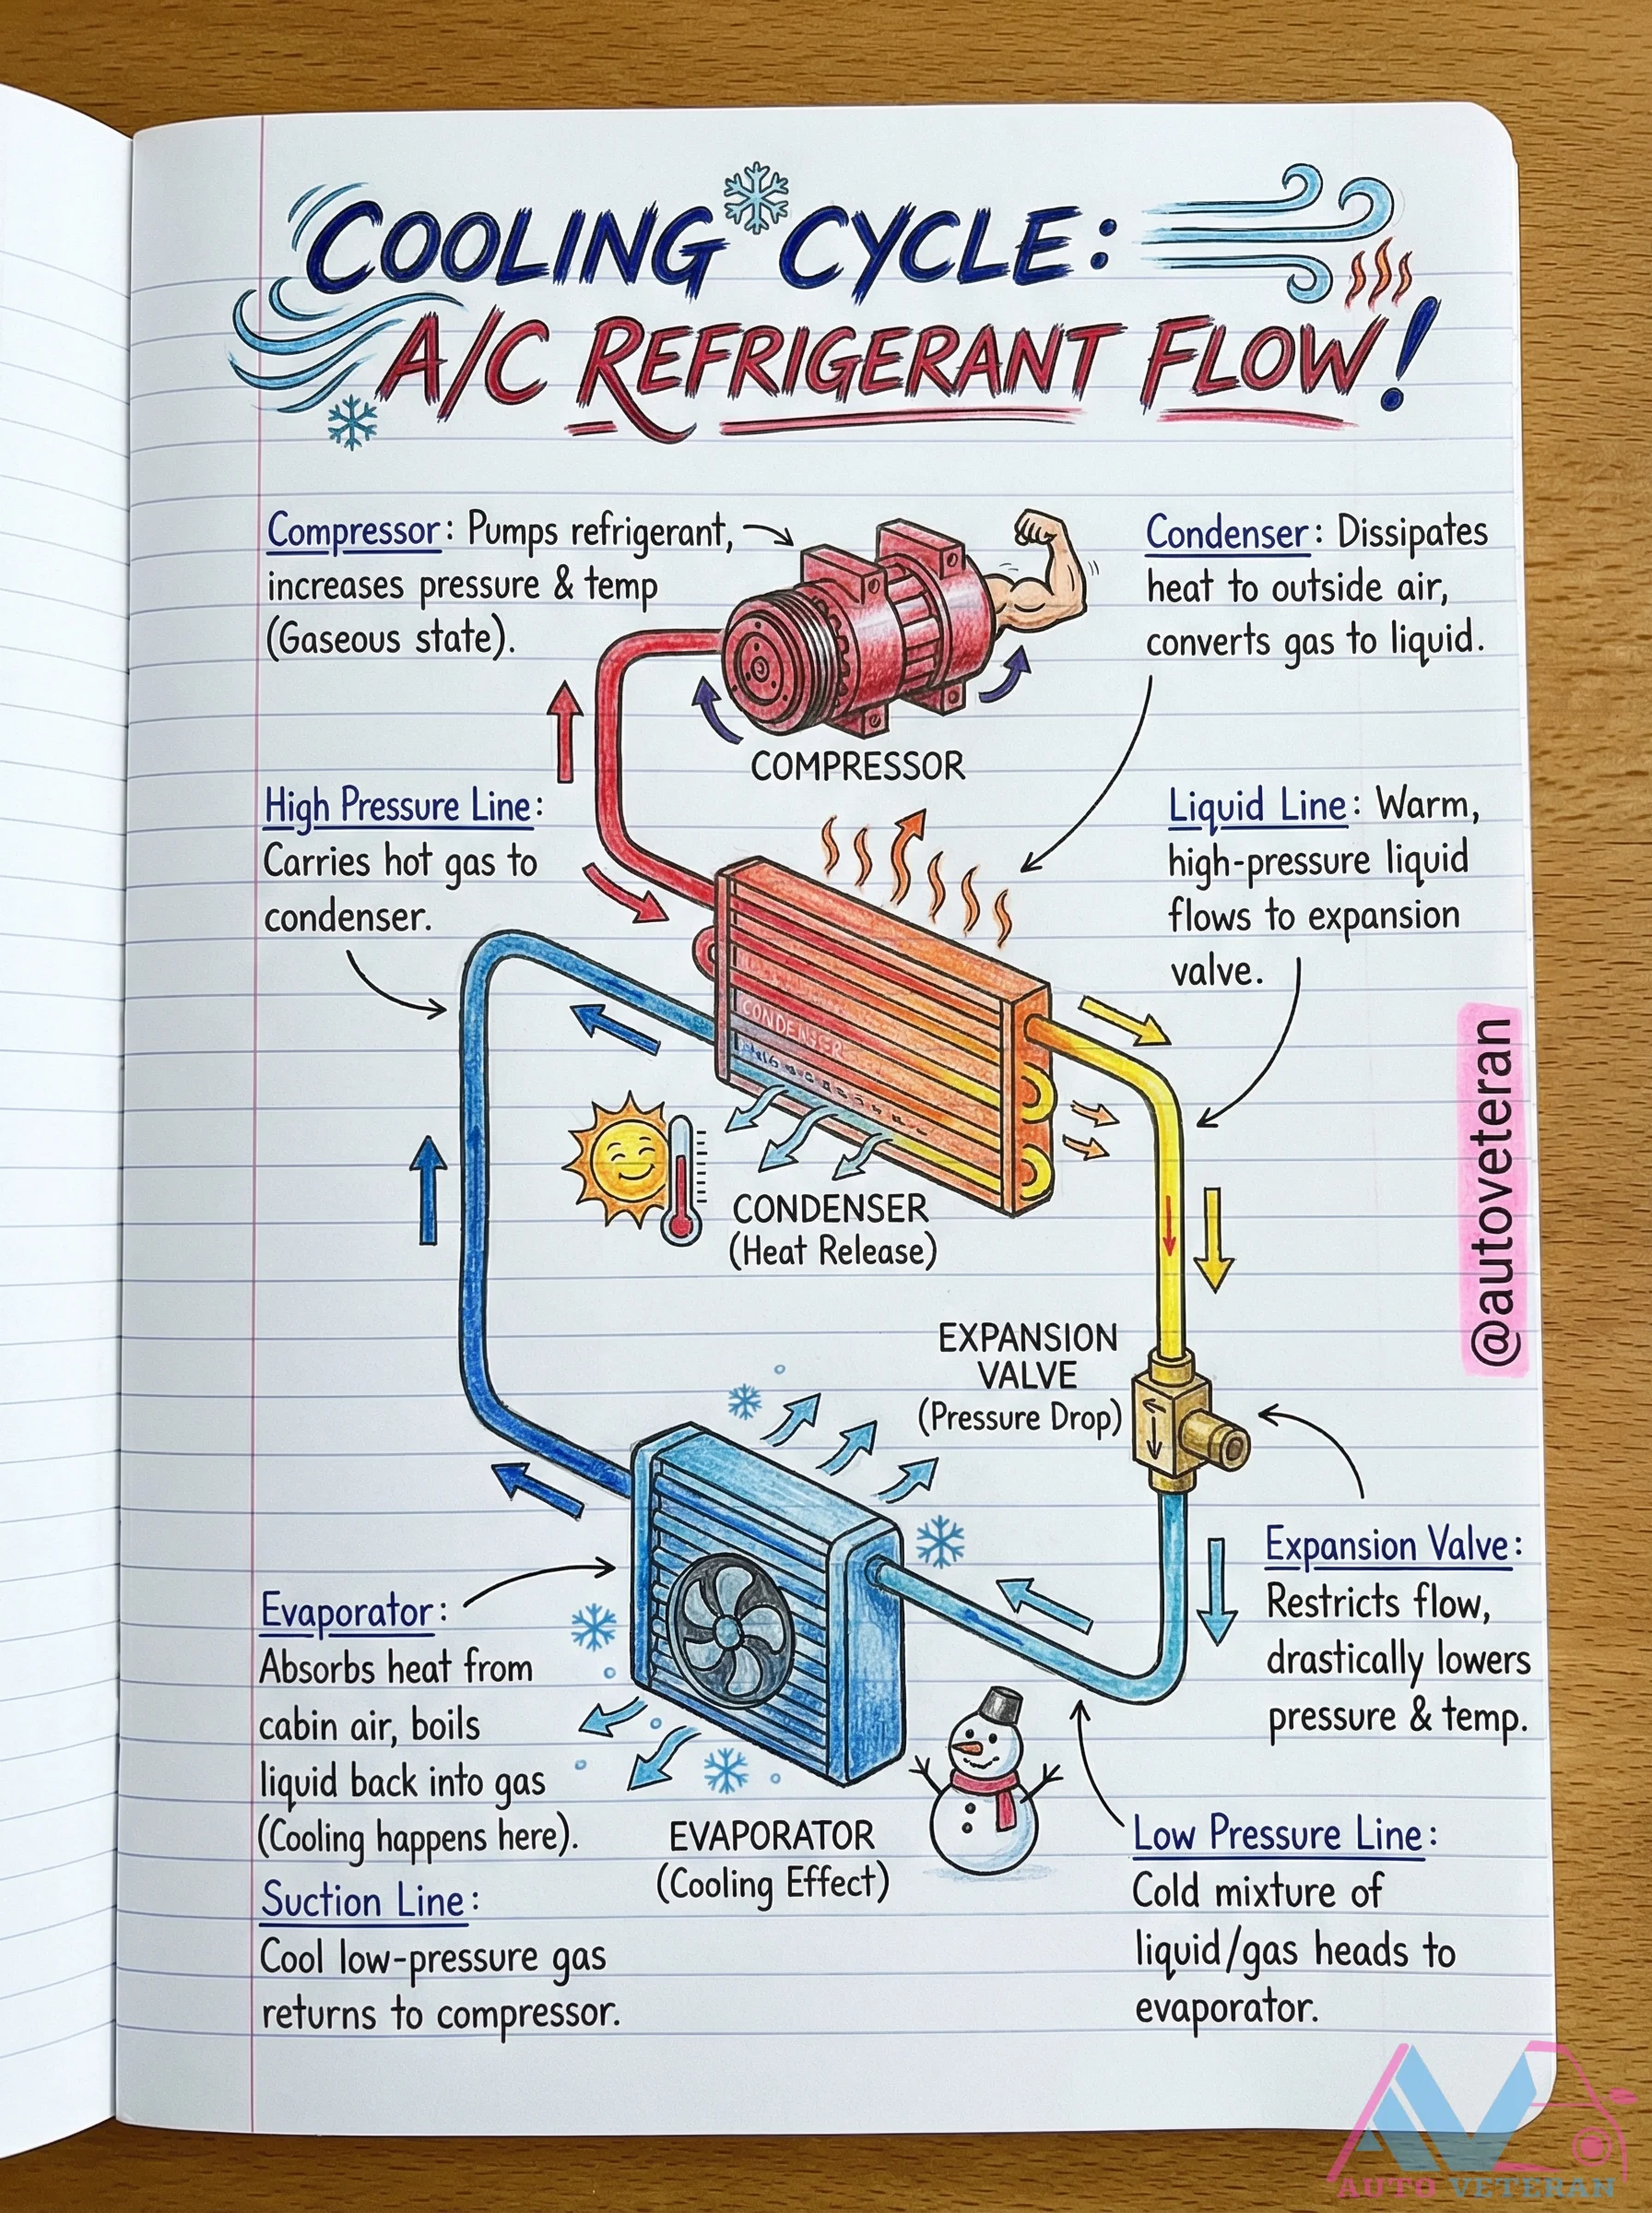 COOLING CYCLE:
A/C REFRIGERANT FLOW!
Compressor: Pumps refrigerant,
increases pressure & temp
(Gaseous state).
Condenser: Dissipates
heat to outside air,
converts gas to liquid.
COMPRESSOR
High Pressure Line:
Carries hot gas to
condenser.
Liquid Line: Warm,
high-pressure liquid
flows to expansion
valve.
CONDENSER
@autoveteran
CONDENSER
(Heat Release)
EXPANSION
VALVE
(Pressure Drop)
Expansion Valve:
Restricts flow,
drastically lowers
pressure & temp.
Evaporator:
Absorbs heat from
cabin air, boils
liquid back into gas
(Cooling happens here).
EVAPORATOR
(Cooling Effect)
Suction Line:
Cool low-pressure gas
returns to compressor.
Low Pressure Line:
Cold mixture of
liquid/gas heads to
evaporator.
AV
AUTO VETERAN